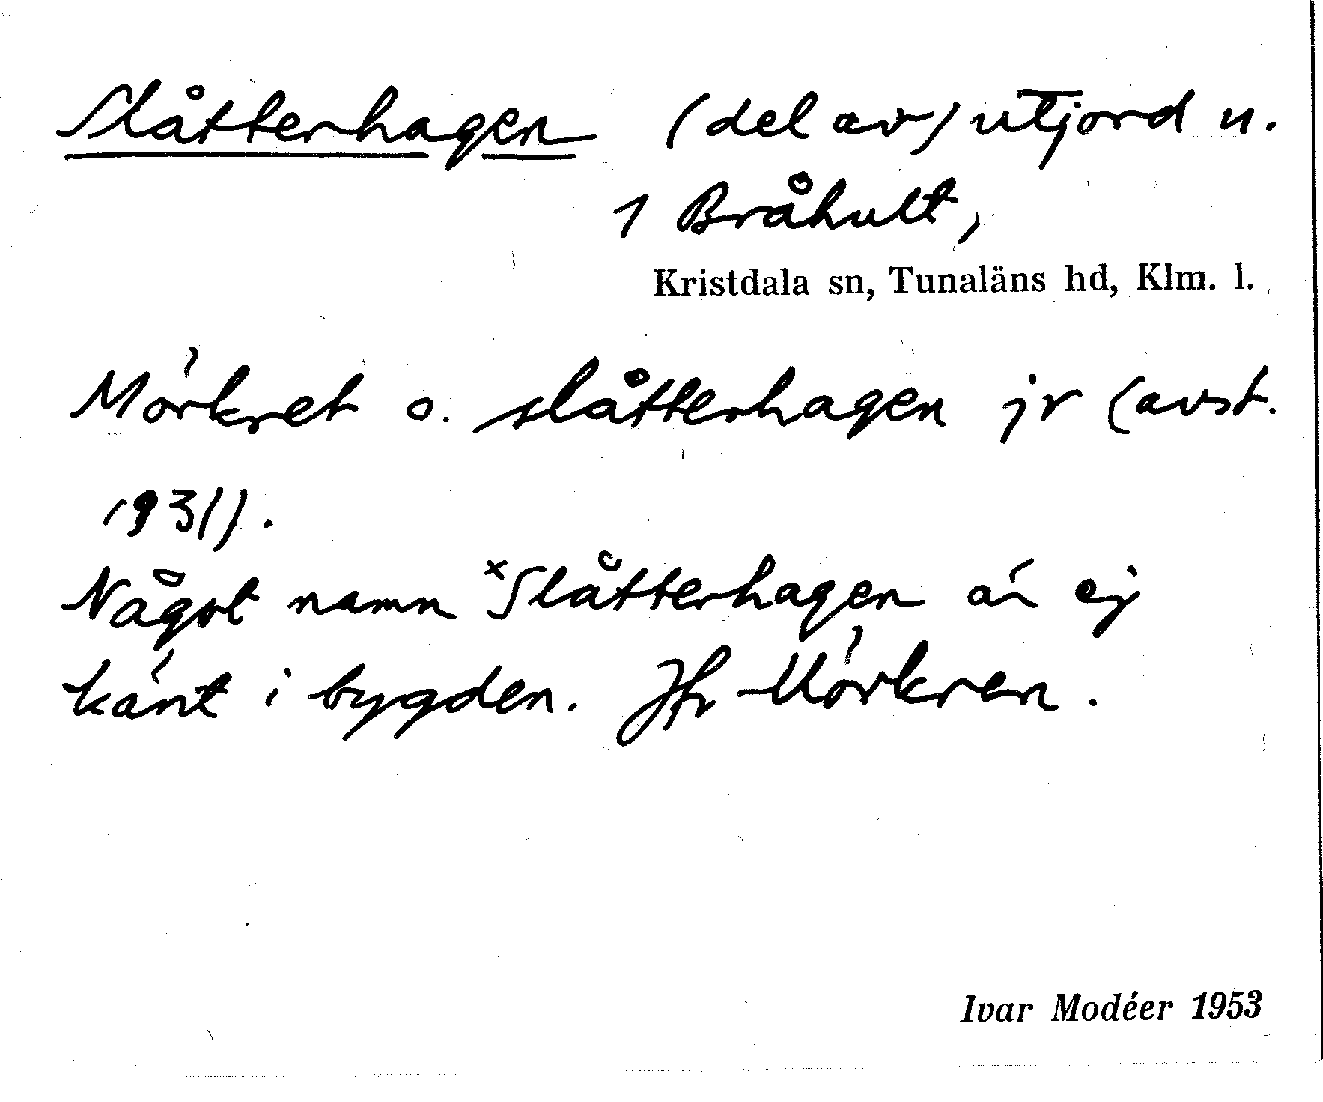 Slåtterhagen (del av) utjord u.
1 Bråhult,
Kristdala sn, Tunaläns hd, Klm. l.
Mörkret o. slåtterhagen jr (avst.
1931).
Något namn ×Slåtterhagen är ej
känt i bygden. Jfr Mörkren.
Ivar Modéer 1953